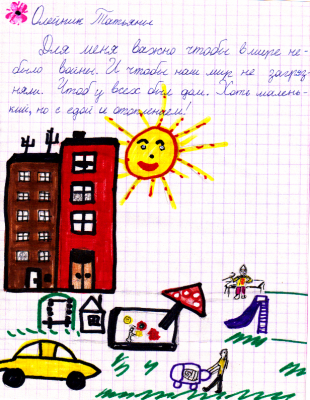 Олейник Татьяна
Для меня важно чтобы в мире не-
было войны. И чтобы наш мир не загряз-
няли. Чтоб у всех был дом. Хоть малень-
кий, но с едой и отоплением!